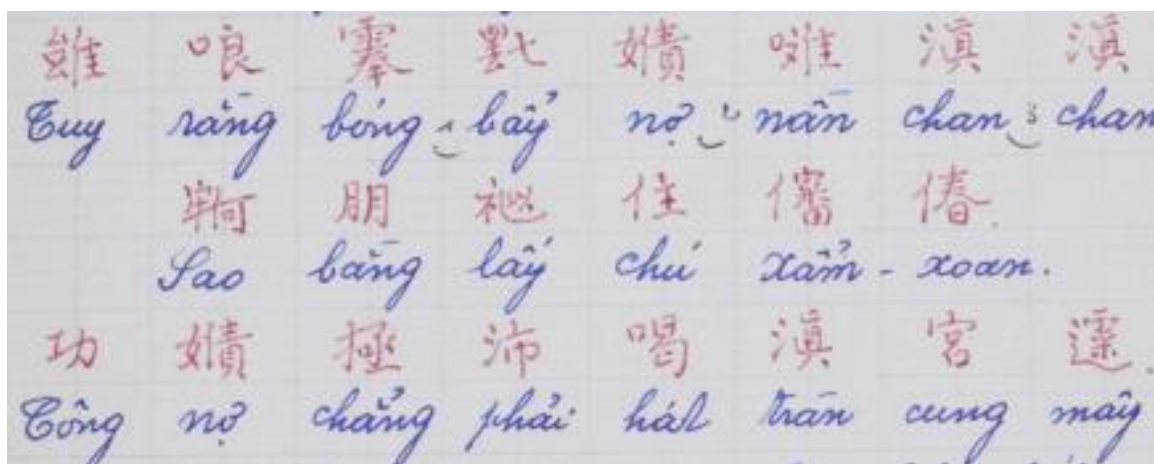 雖 哴 嫧 滇 滇
Tuy rằng bóng bẩy nợ nần chan chan
朋 𥙩 住 偆.
Sao bằng lấy chú Xẩm - xoan.
功 嫧 極 沛 喝 滇 宮
Công nợ chẳng phải hát tràn cung mây